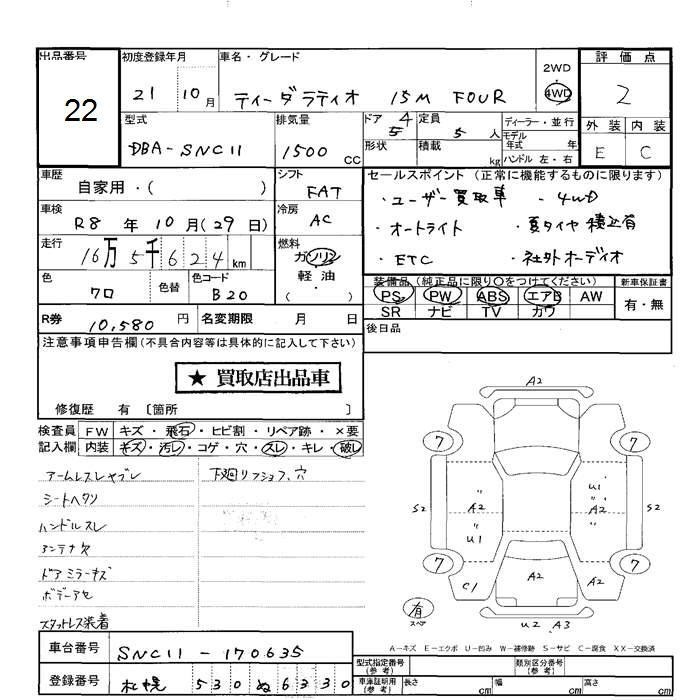 出品番号 22
初度登録年月 21 10月
車名・グレード ティーダラティオ 15M FOUR
2WD 4WD
評価点 2
外装 内装
E C
型式 DBA-SNC11
排気量 1500 cc
ドア 4 5
定員 5 人
形状
積載 kg
ディーラー・並行
モデル年式 年
ハンドル 左・右
車歴 自家用・( )
シフト FAT
セールスポイント (正常に機能するものに限ります)
・ユーザー買取車 ・4WD
・オートライト ・夏タイヤ積込有
・ETC ・社外オーディオ
車検 R8年10月(29日)
冷房 AC
走行 16万5千624km
燃料 ガソリン 軽油 ( )
色 クロ
色替
色コード B20
装備品 (純正品に限り○をつけてください)
新車保証書
PS PW ABS エアB AW
SR ナビ TV カワ
有・無
R券 10,580 円
名変期限 月 日
後日品
注意事項申告欄(不具合内容等は具体的に記入して下さい)
★ 買取店出品車
修復歴 有 〔箇所 〕
検査員記入欄
FW キズ・飛石・ヒビ割・リペア跡・×要
内装 キズ・汚レ・コゲ・穴・スレ・キレ・破レ
アームレスレヤブレ
下廻リフショフ、穴
シートヘタリ
ハンドルスレ
アンテナ欠
ドアミラーキズ
ボデーアセ
スタットレス装着
A2
7 7
S2 〃 A2 〃 U1 U1 〃 A2 〃 S2
7 7
C1 A2 A2
有 スペア
U2 、A3
A-キズ E-エクボ U-凹み W-補修跡 S-サビ C-腐食 XX-交換済
車台番号 SNC11-170635
登録番号 札幌 530 ぬ 6330
型式指定番号(参考)
類別区分番号(参考)
車庫証明用(参考) 長さ cm 幅 cm 高さ cm